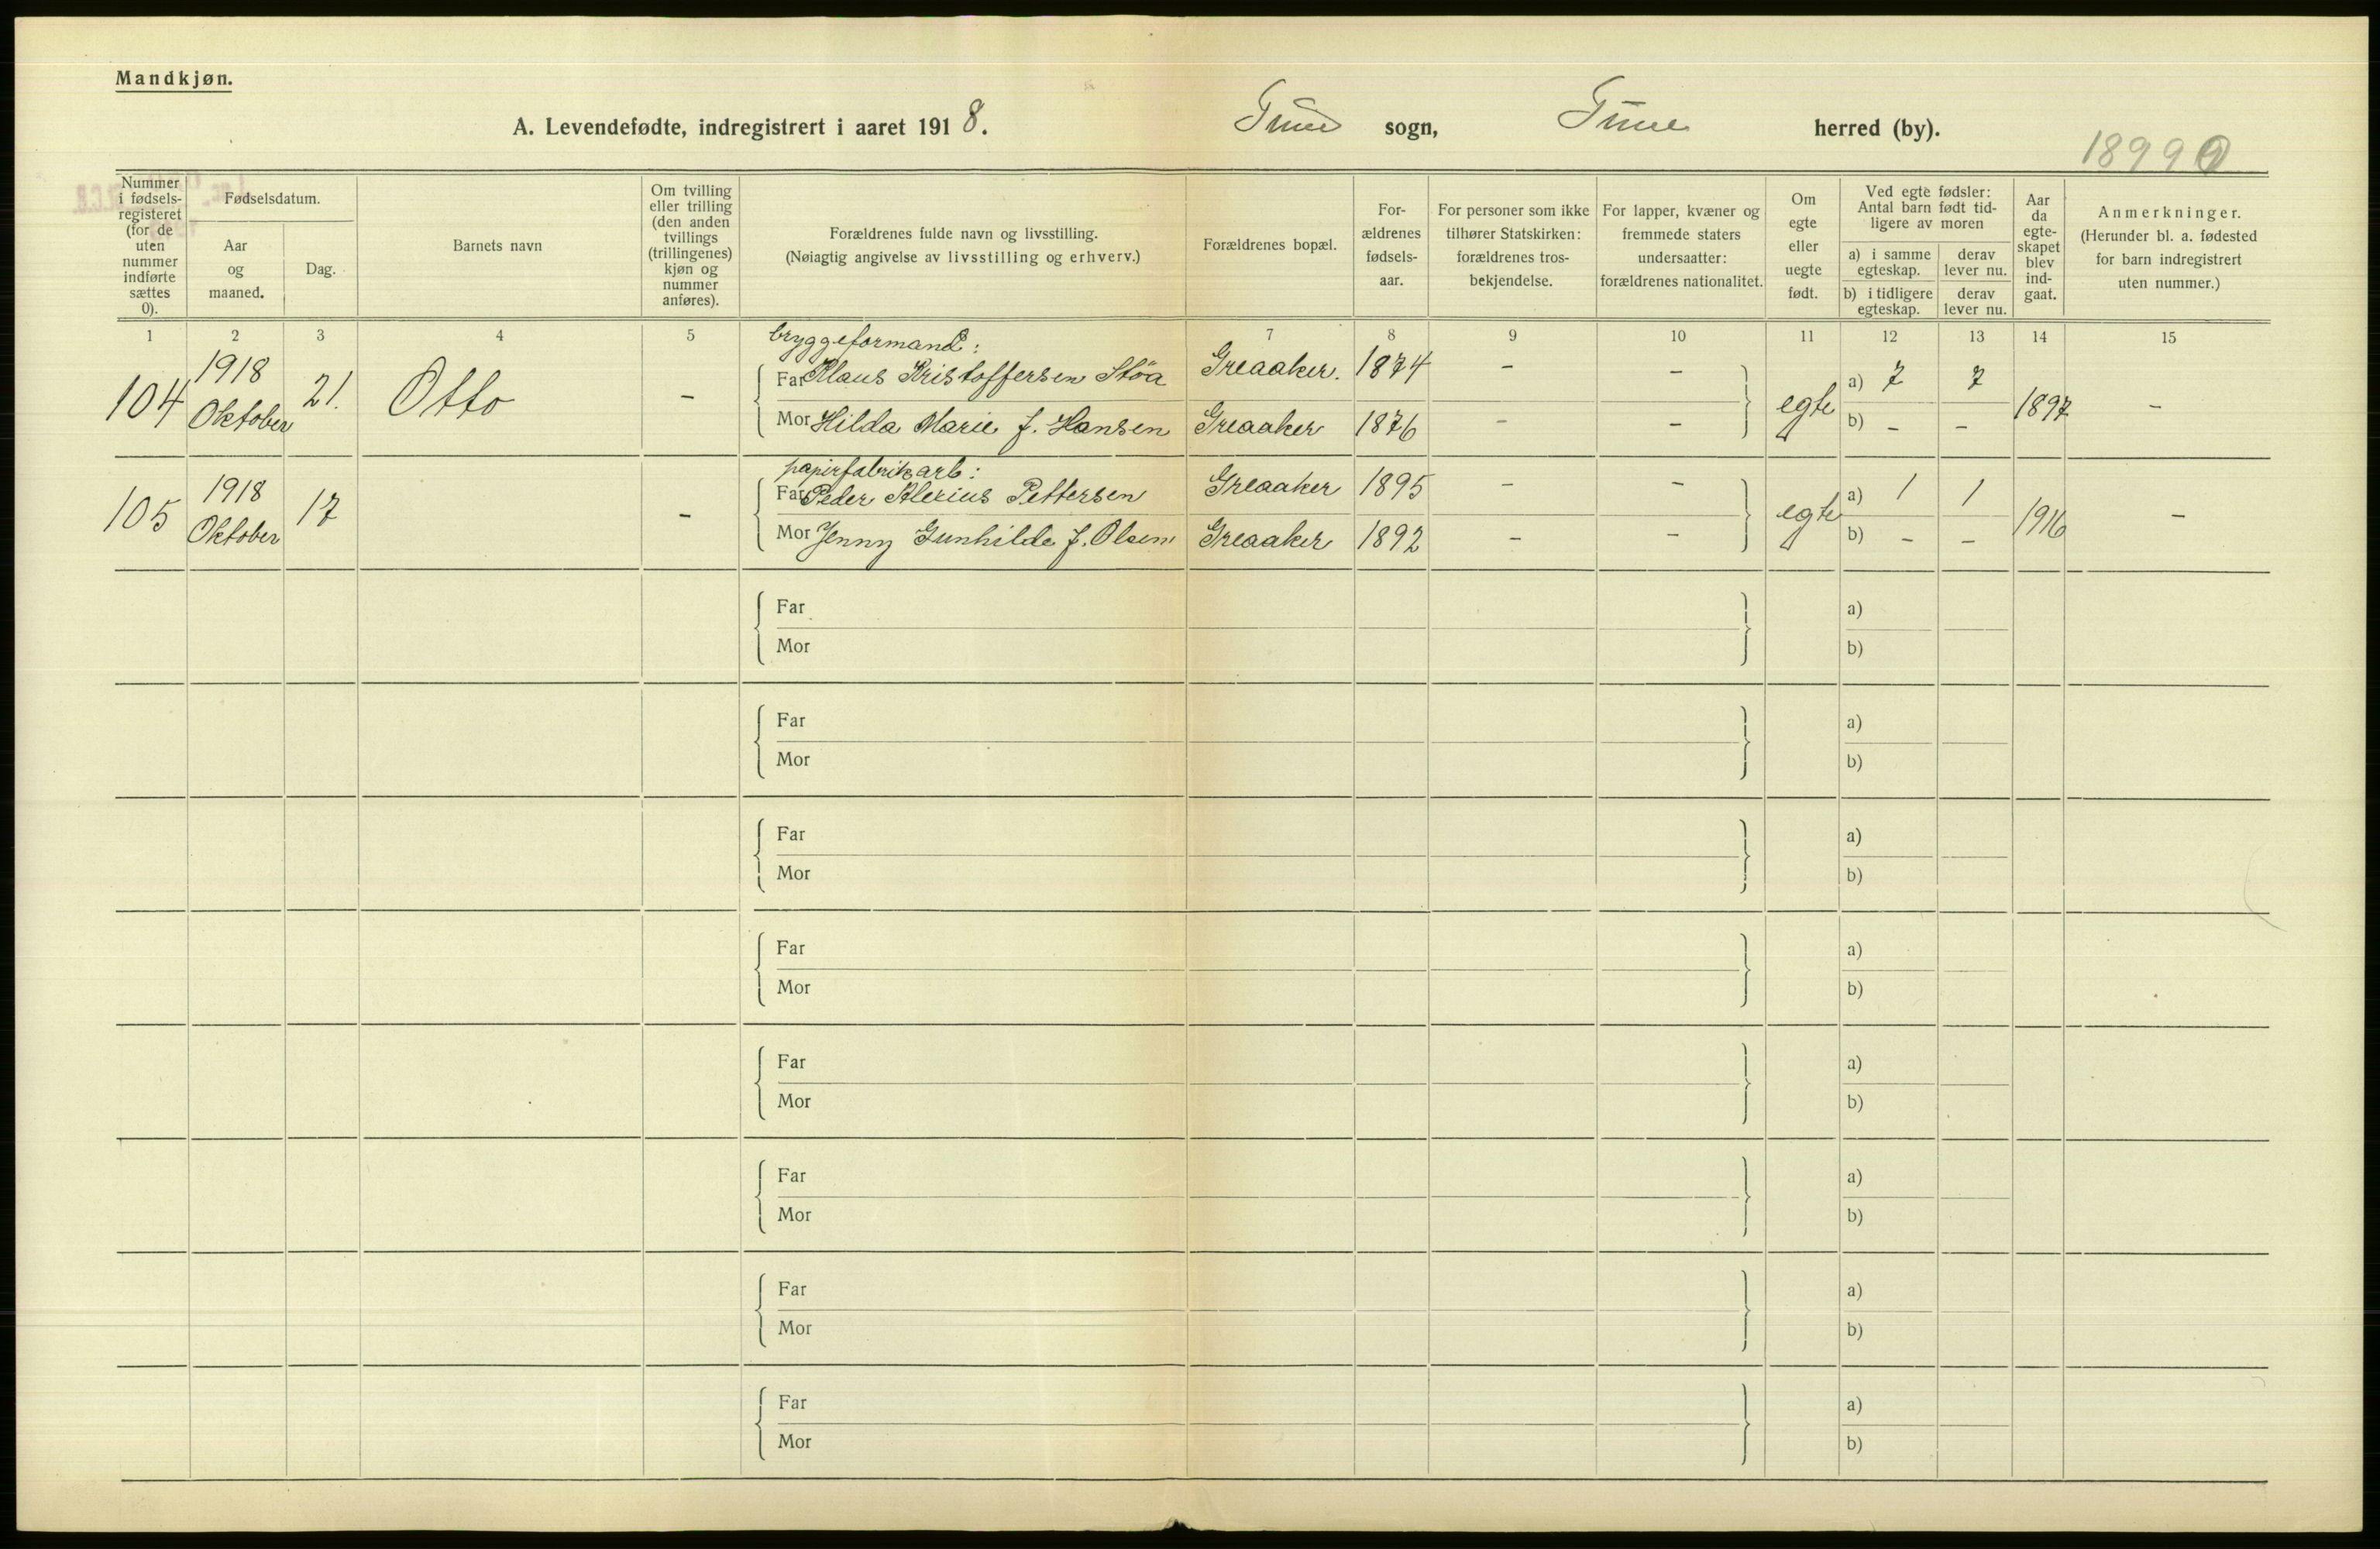 Mandkjøn.
A. Levendefødte, indregistrert i aaret 1918. Tune sogn, Tune herred (by).
1899
Nummer i fødsels-registeret (for de uten nummer indførte sættes 0).
Fødselsdatum.
Aar og maaned.
Dag.
Barnets navn
Om tvilling eller trilling (den anden tvillings (trillingenes) kjøn og nummer anføres).
Forældrenes fulde navn og livsstilling.
(Nøiagtig angivelse av livsstilling og erhverv.)
Forældrenes bopæl.
For-ældrenes fødsels-aar.
For personer som ikke tilhører Statskirken: forældrenes tros-bekjendelse.
For lapper, kvæner og fremmede staters undersaatter: forældrenes nationalitet.
Om egte eller uegte født.
Ved egte fødsler: Antal barn født tid-ligere av moren
a) i samme egteskap.
derav lever nu.
b) i tidligere egteskap.
derav lever nu.
Aar da egte-skapet blev ind-gaat.
Anmerkninger.
(Herunder bl. a. fødested for barn indregistrert uten nummer.)
1 2 3 4 5 7 8 9 10 11 12 13 14 15
bryggeformand:
104 1918 Oktober 21. Otto -
Far Klaus Kristoffersen Stöa Greaaker. 1874 - -
Mor Hilda Marie f. Hansen Greaaker 1876 - -
egte a) 7 7 b) - - 1897 -
papirfabrikarb:
105 1918 Oktober 17 -
Far Peder Alexius Pettersen Greaaker 1895 - -
Mor Jenny Gunhilde f. Olsen Greaaker 1892 - -
egte a) 1 1 b) - - 1916 -
Far a)
Mor b)
Far a)
Mor b)
Far a)
Mor b)
Far a)
Mor b)
Far a)
Mor b)
Far a)
Mor b)
Far a)
Mor b)
Far a)
Mor b)